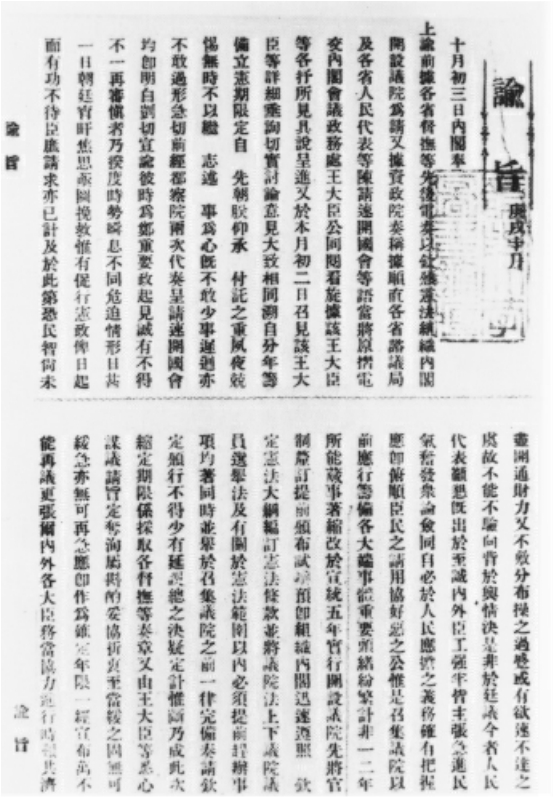 諭旨
庚戌十月
十月初三日內閣奉
上諭前據各省督撫等先後電奏以欽頒憲法組織內閣
開設議院爲請又據資政院奏稱據順直各省諮議局
及各省人民代表等陳請速開國會等語當將原摺電
交內閣會議政務處王大臣公同閱看旋據該王大臣
等各抒所見具說呈進又於本月初二日召見該王大
臣等詳細垂詢切實討論意見大致相同溯自分年籌
備立憲期限定自 先朝朕仰承 付託之重夙夜兢
惕無時不以繼 志述 事爲心旣不敢少事遲迴亦
不敢過形急切前經都察院兩次代奏呈請速開國會
均卽明白剴切宣諭彼時爲鄭重要政起見誠有不得
不一再審愼者乃揆度時勢瞬息不同危迫情形日甚
一日朝廷宵旰焦思亟圖挽救惟有促行憲政俾日起
而有功不待臣庶請求亦已計及於此第恐民智尙未
諭旨
盡開通財力又不敷分布操之過蹙或有欲速不達之
虞故不能不驗向背於輿情決是非於廷議今者人民
代表籲懇旣出於至誠內外臣工強半皆主張急進民
氣奮發衆論僉同自必於人民應擔之義務確有把握
應卽俯順臣民之請用協好惡之公惟是召集議院以
前應行籌備各大端事體重要頭緒紛繁計非一二年
所能蕆事著縮改於宣統五年實行開設議院先將官
制釐訂提前頒布試辦預卽組織內閣迅速遵照 欽
定憲法大綱編訂憲法條款並將議院法上下議院議
員選舉法及有關於憲法範圍以內必須提前趕辦事
項均著同時並舉於召集議院之前一律完備奏請欽
定頒行不得少有延誤總之決疑定計惟斷乃成此次
縮定期限係採取各督撫等奏章又由王大臣等悉心
謀議請旨定奪洵屬斟酌妥協折衷至當緩之固無可
緩急亦無可再急應卽作爲確定年限一經宣布萬不
能再議更張爾內外各大臣務當協力進行時艱共濟
諭旨